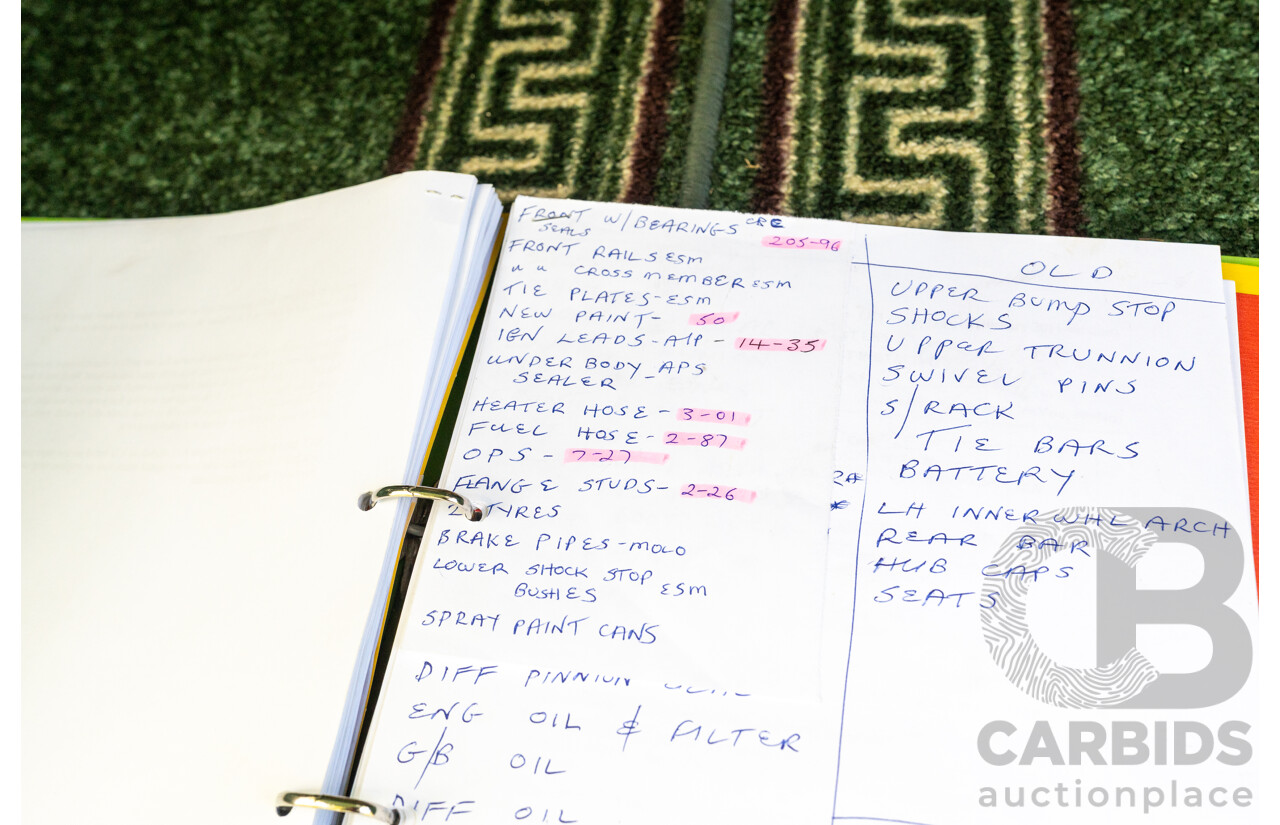 FRONT W/BEARINGS CRC
SEALS
205-96
FRONT RAILS ESM
" " CROSS MEMBER ESM
TIE PLATES-ESM
NEW PAINT- 50
IGN LEADS-A1P- 14-35
UNDER BODY APS
SEALER -
HEATER HOSE- 3-01
FUEL HOSE- 2-87
OPS- 7-27
FLANGE STUDS- 2-26
2 TYRES
BRAKE PIPES-MOLO
LOWER SHOCK STOP
BUSHES ESM
SPRAY PAINT CANS
DIFF PINNIUN
ENG OIL & FILTER
G/B OIL
DIFF OIL
OLD
UPPER BUMP STOP
SHOCKS
UPPER TRUNNION
SWIVEL PINS
S/RACK
TIE BARS
BATTERY
LH INNER WHL ARCH
REAR BAR
HUB CAPS
SEATS
CB
CARBIDS
auctionplace